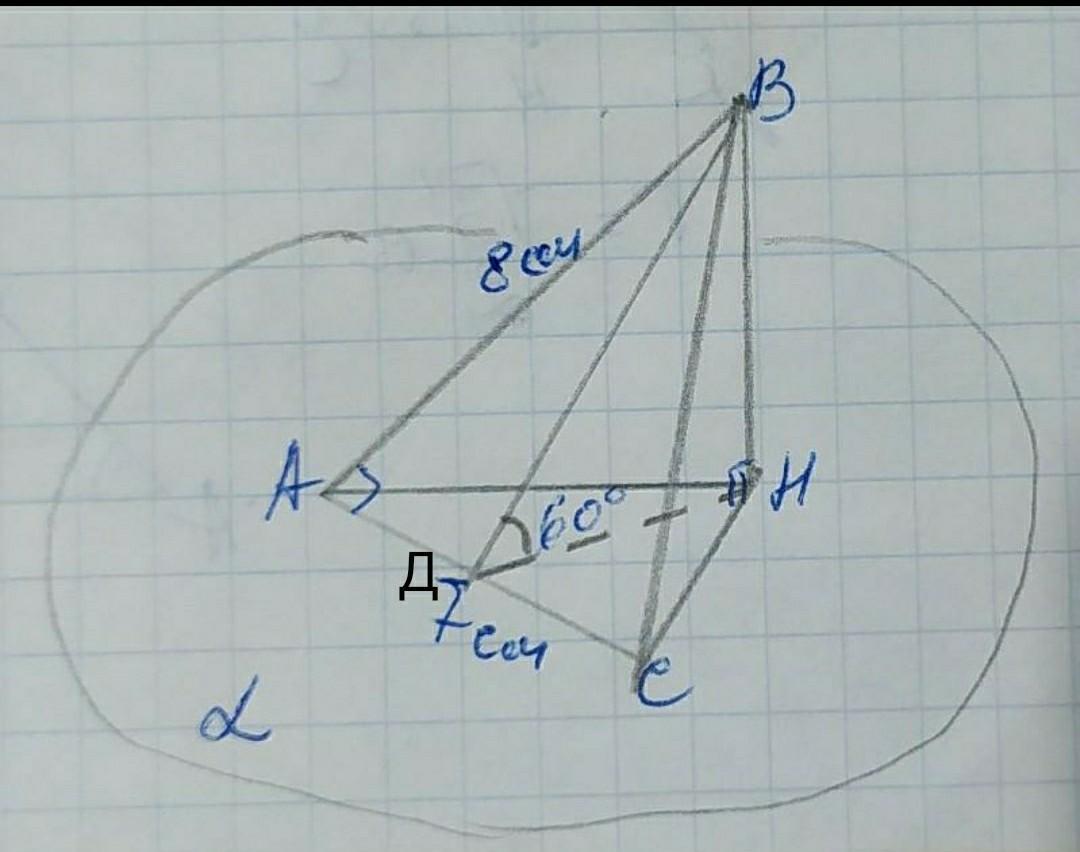 B
8 см
A
H
60°
Д
7 см
C
α